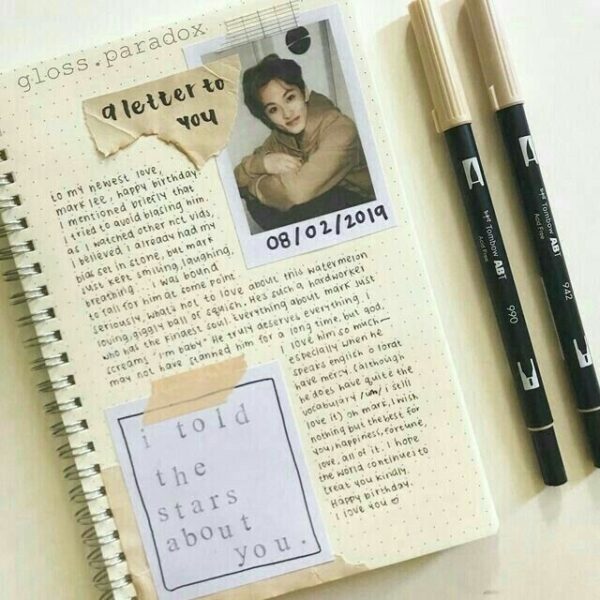 gloss.paradox
a letter to
you
08/02/2019
to my newest love,
mark lee, happy birthday.
i mentioned briefly that
i tried to avoid biasing him
as i watched other nct vids.
i believed i already had my
bias set in stone, but mark
just kept smiling, laughing,
breathing... i was bound
to fall for him at some point.
seriously, what's not to love about this watermelon
loving, giggly ball of squish. He's such a hardworker
who has the kindest soul. Everything about mark just
screams "i'm baby." He truly deserves everything. i
may not have stanned him for a long time, but god,
i love him so much—
especially when he
speaks english o lordt
have mercy. (although
he does have quite the
vocabulary /um/ i still
love it) oh mark, i wish
nothing but the best for
you, happiness, fortune,
love, all of it. i hope
the world continues to
treat you kindly.
Happy birthday.
I love you
i told
the
stars
about
you.
Tombow ABT
Acid Free
990
Tombow ABT
Acid Free
942